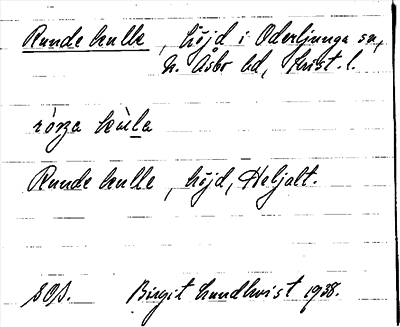 Runde kulle, höjd i Oderljunga sn,
N. Åsbo hd, Krist. l.
kùla
Runde kulle, höjd, Heljalt.
SOf. Birgit Lundkvist 1938.